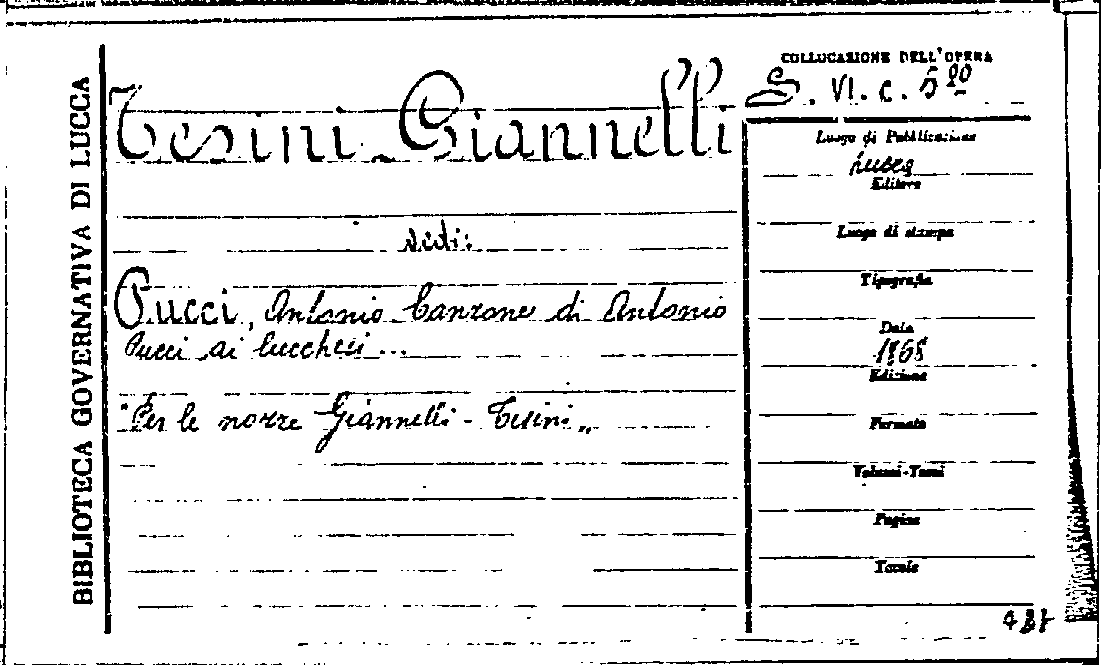 BIBLIOTECA GOVERNATIVA DI LUCCA
Tesini-Giannelli
vedi:
Pucci, Antonio Canzone di Antonio
Pucci ai lucchesi...
"Per le nozze Giannelli-Tesini"
COLLOCAZIONE DELL'OPERA
S. VI. c. 5
Luogo di Pubblicazione
Lucca
Editore
Luogo di stampa
Tipografia
Data
1868
Edizione
Formato
Volumi-Tomi
Pagine
Tavole